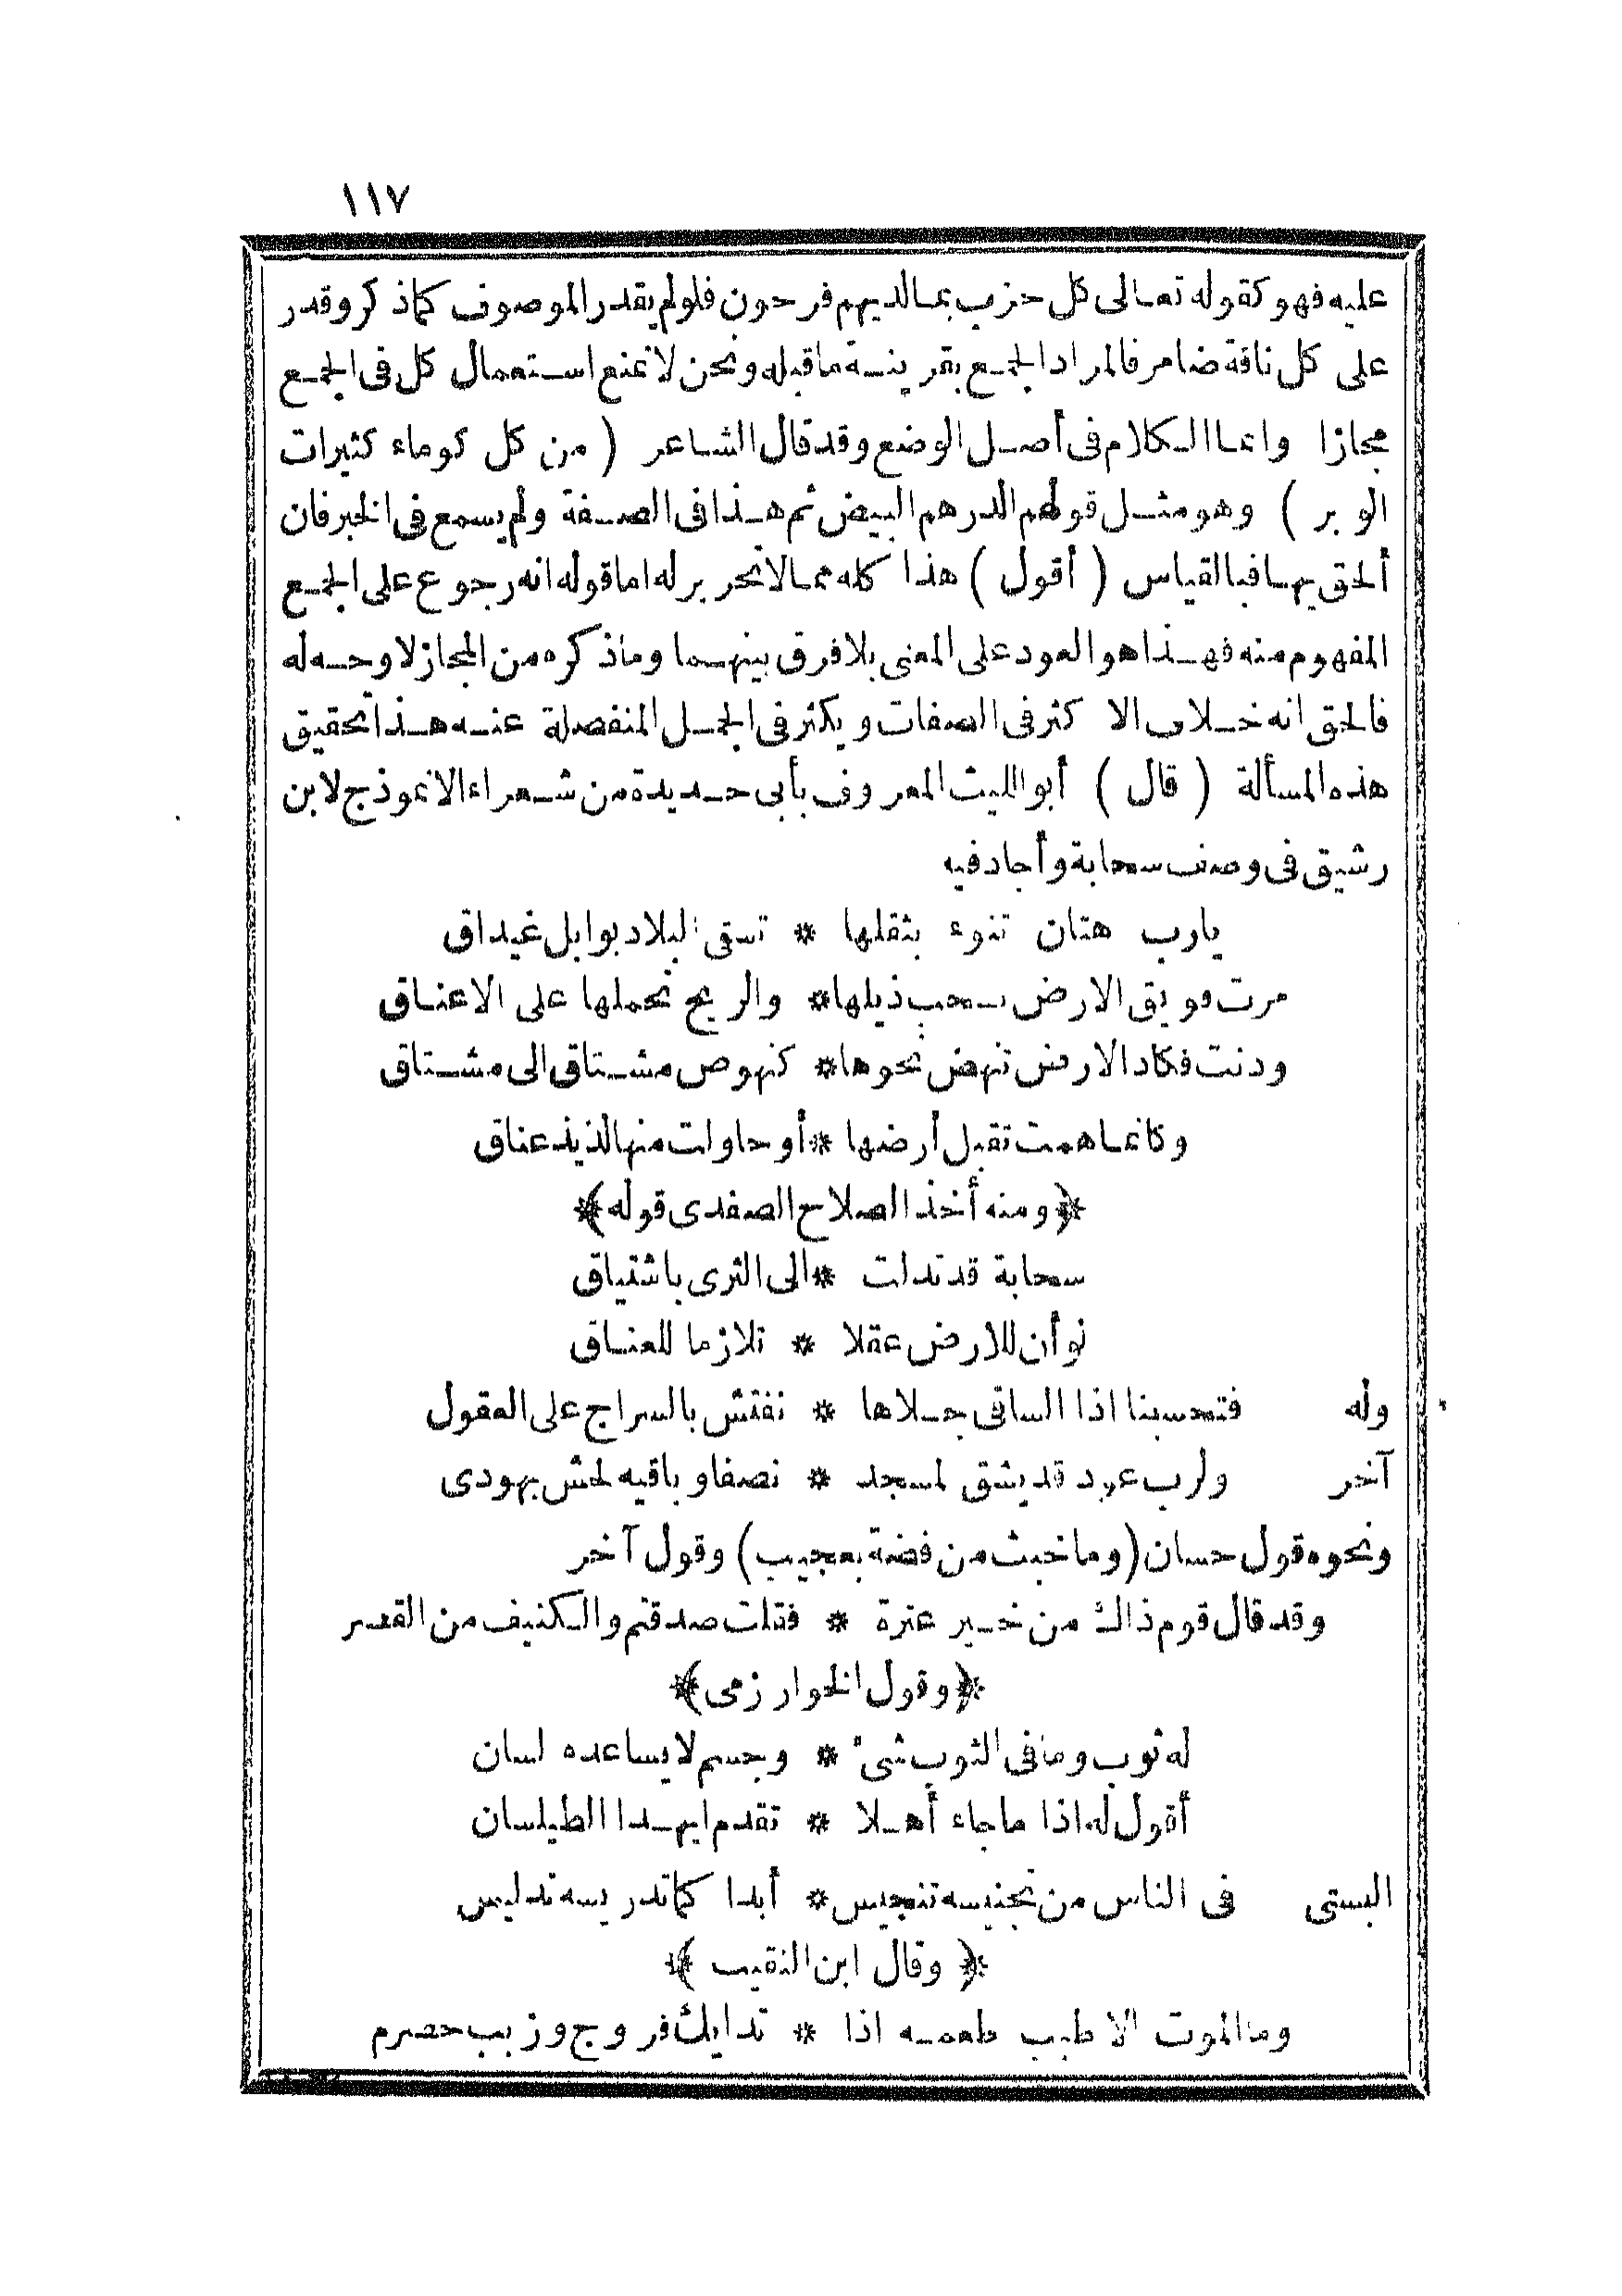 ١١٧
عليه فهو كقوله تعالى كل حزب بما لديهم فرحون فلو لم يقدر الموصوف كما ذكر وقدر
على كل ناقة ضامر فالمراد الجمع بقرينة ما قبله ونحن لا نمنع استعمال كل فى الجمع
مجازا وانما الكلام فى أصل الوضع وقد قال الشاعر ( من كل كوماء كثيرات
الوبر ) وهو مثل قولهم الدرهم البيض ثم هذا فى الصفة ولم يسمع فى الخبر فان
ألحق بها فبالقياس ( أقول ) هذا كله مما لا تحرير له اما قوله انه رجوع على الجمع
المفهوم منه فهذا هو العود على المعنى بلا فرق بينهما وما ذكره من المجاز لا وجه له
فالحق انه خلاف الاكثر فى الصفات ويكثر فى الجمل المنفصلة عنه هذا تحقيق
هذه المسألة ( قال ) أبو الليث المعروف بأبى حديدة من شعراء الانموذج لابن
رشيق فى وصف سحابة وأجاد فيه
يارب هتان تنوء بثقلها * تسقى البلاد بوابل غيداق
مرت فويق الارض تسحب ذيلها * والريح تحملها على الاعناق
ودنت فكاد الارض تنهض نحوها * كنهوض مشتاق الى مشتاق
وكانما همت تقبل أرضها * أو حاولت منها لذيذ عناق
﴿ ومنه أخذ الصلاح الصفدى قوله ﴾
سحابة قد تدلت * الى الثرى باشتياق
لو أن للارض عقلا * تلازما للعناق
وله فتحسبنا اذا الساقى جلاها * نفتش بالسراج على العقول
آخر ولرب عود قد يشق لمسجد * نصفا وباقيه لحش يهودى
ونحوه قول حسان ( وما خبث من فضة بعجيب ) وقول آخر
وقد قال قوم ذاك من خير عترة * فقلت صدقتم والكنيف من القصر
﴿ وقول الخوارزمى ﴾
له ثوب وما فى الثوب شئ * وجسم لا يساعده لسان
أقول له اذا ما جاء أهلا * تقدم ايهذا الطيلسان
البستى فى الناس من تجنيسه تنجيس * أبدا كما تدريسه تدليس
﴿ وقال ابن النقيب ﴾
وما الموت الا طيب طعمه اذا * تدايك فروج وزبب حصرم